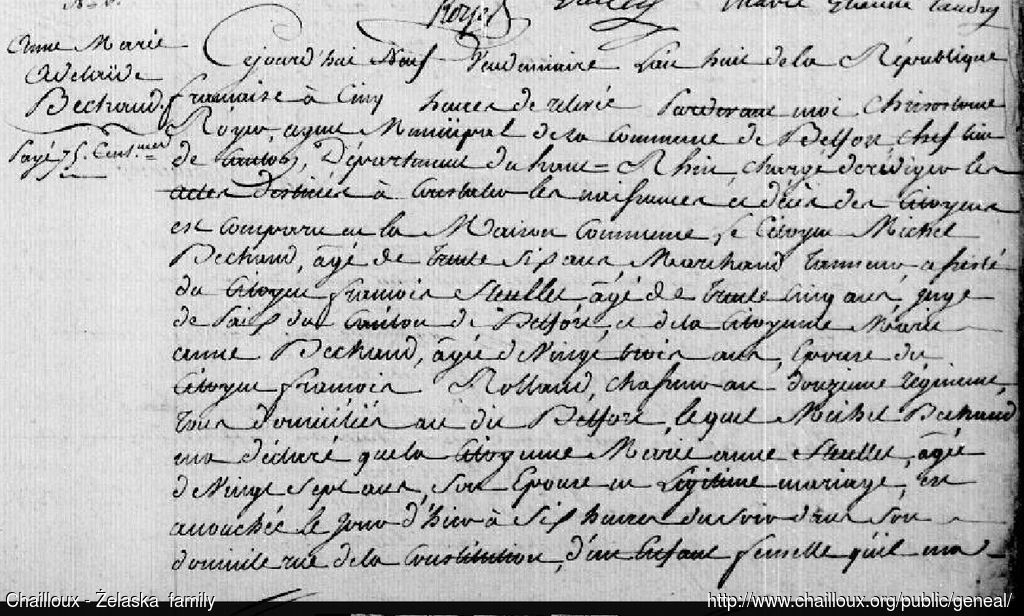 Royer
Marie Etienne
Anne Marie
Adelaïde
Bechaud.
Payé 75. Cent.mes
Cejourd'hui Neuf Vendemiaire L'an huit de la République
francaise à Cinq heures de relevée Pardevant moi Chrisostome
Royer, agent Municipal de la Commune de Belfort, chef lieu
de Canton, Département du haut=Rhin, chargé de rediger les
actes destinés à Constater les naissances et décès des Citoyens
est comparu en la Maison Commune, le Citoyen Michel
Bechaud, âgé de trente six ans, Marchand tanneur, assisté
du Citoyen francois Steullet âgé de trente Cinq ans, juge
de Paix du Canton de Belfort, et de la Citoyenne Marie
anne Bechaud, âgée de Vingt trois ans, Epouse du
Citoyen francois Rolland, chasseur au douzieme régiment,
tous domiciliés au dit Belfort, lequel Michel Bechaud
m'a déclaré que la Citoyenne Marie anne Steullet, âgée
de Vingt Sept ans, son Epouse en Légitime mariage, Est
accouchée le jour d'hier à Six heures du soir dans son
domicile rue de la Constitution, d'un Enfant femelle qu'il m'a
Chailloux - Żelaska family
http://www.chailloux.org/public/geneal/